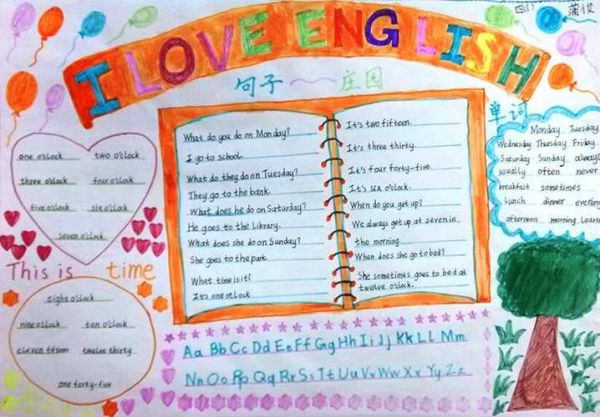 四(1) 蒲俊
I LOVE ENGLISH
句子~~庄园
单词
one o'clock two o'clock
three o'clock four o'clock
five o'clock six o'clock
seven o'clock
This is time
eight o'clock
nine o'clock ten o'clock
eleven fifteen twelve thirty
one forty-five
What do you do on Monday?
I go to school.
What do they do on Tuesday?
They go to the bank.
What does he do on Saturday?
He goes to the library.
What does she do on Sunday?
She goes to the park.
What time is it?
It's one o'clock
It's two fifteen.
It's three thirty.
It's four forty-five.
It's six o'clock.
When do you get up?
We always get up at seven in
the morning.
When does she go to bed?
She sometimes goes to bed at
twelve o'clock.
Monday Tuesday
Wednesday Thursday Friday
Saturday Sunday always
usually often never
breakfast sometimes
lunch dinner evening
afternoon morning learn
Aa Bb Cc Dd Ee Ff Gg Hh Ii Jj Kk Ll Mm
Nn Oo Pp Qq Rr Ss Tt Uu Vv Ww Xx Yy Zz